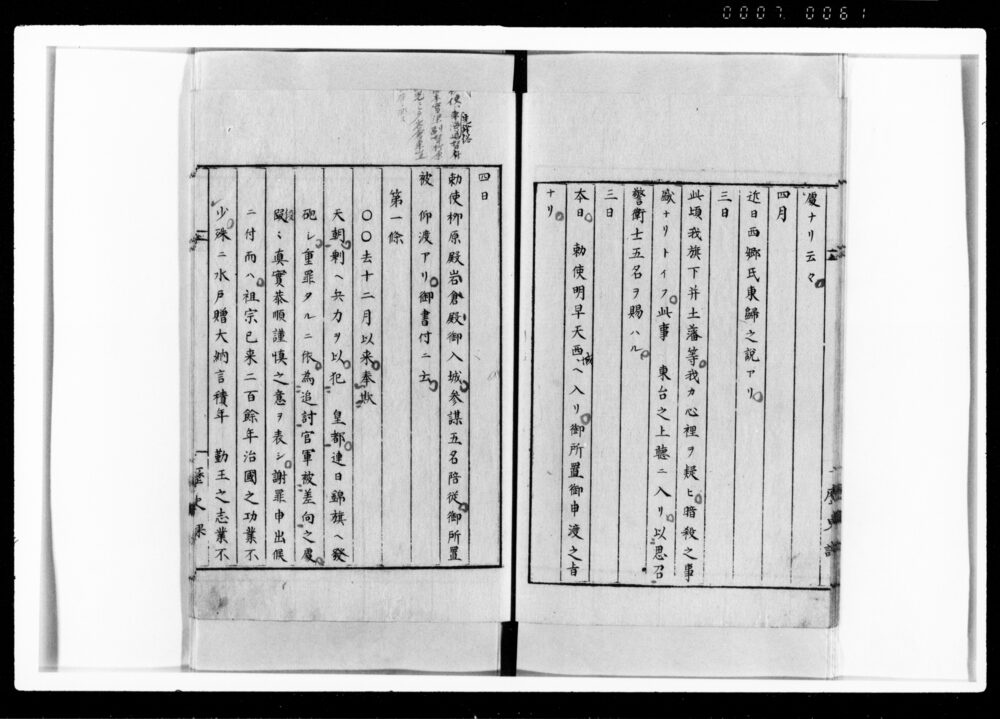 0007 0061
處ナリ云々
四月
近日西郷氏東歸之說アリ
三日
此頃我旗下并土藩等我カ心裡ヲ疑ヒ暗殺之事
盛ナリトイフ此事 東台之上聽ニ入リ以思召
警衛士五名ヲ賜ハル
三日
本日 勅使明早天西城ヘ入リ御所置御申渡之旨
ナリ
四日
勅使柳原殿岩倉殿御入城参謀五名陪従御所置
被 仰渡アリ御書付ニ云
第一條
〇〇去十二月以来奉欺
天朝剰ヘ兵力ヲ以犯 皇都連日錦旗ヘ發
砲シ重罪タルニ依為追討官軍被差向之處
段々真實恭順謹慎之意ヲ表シ謝罪申出候
ニ付而ハ祖宗已来二百餘年治國之功業不
少殊ニ水戸贈大納言積年 勤王之志業不
歴史課